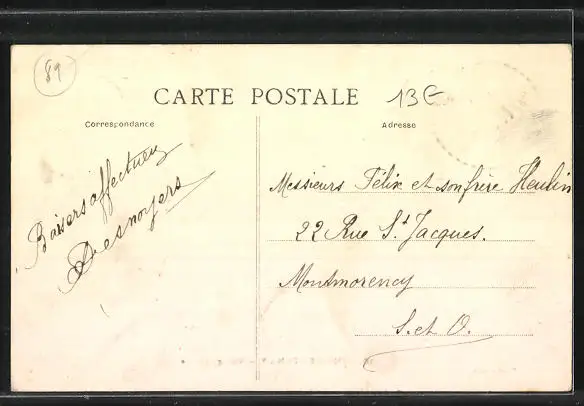 89
CARTE POSTALE
13€
Correspondance
Adresse
Baisers affectueux
Desnoyers
Messieurs Félix et son frère Heulin
22 Rue St Jacques.
Montmorency
S. et O.